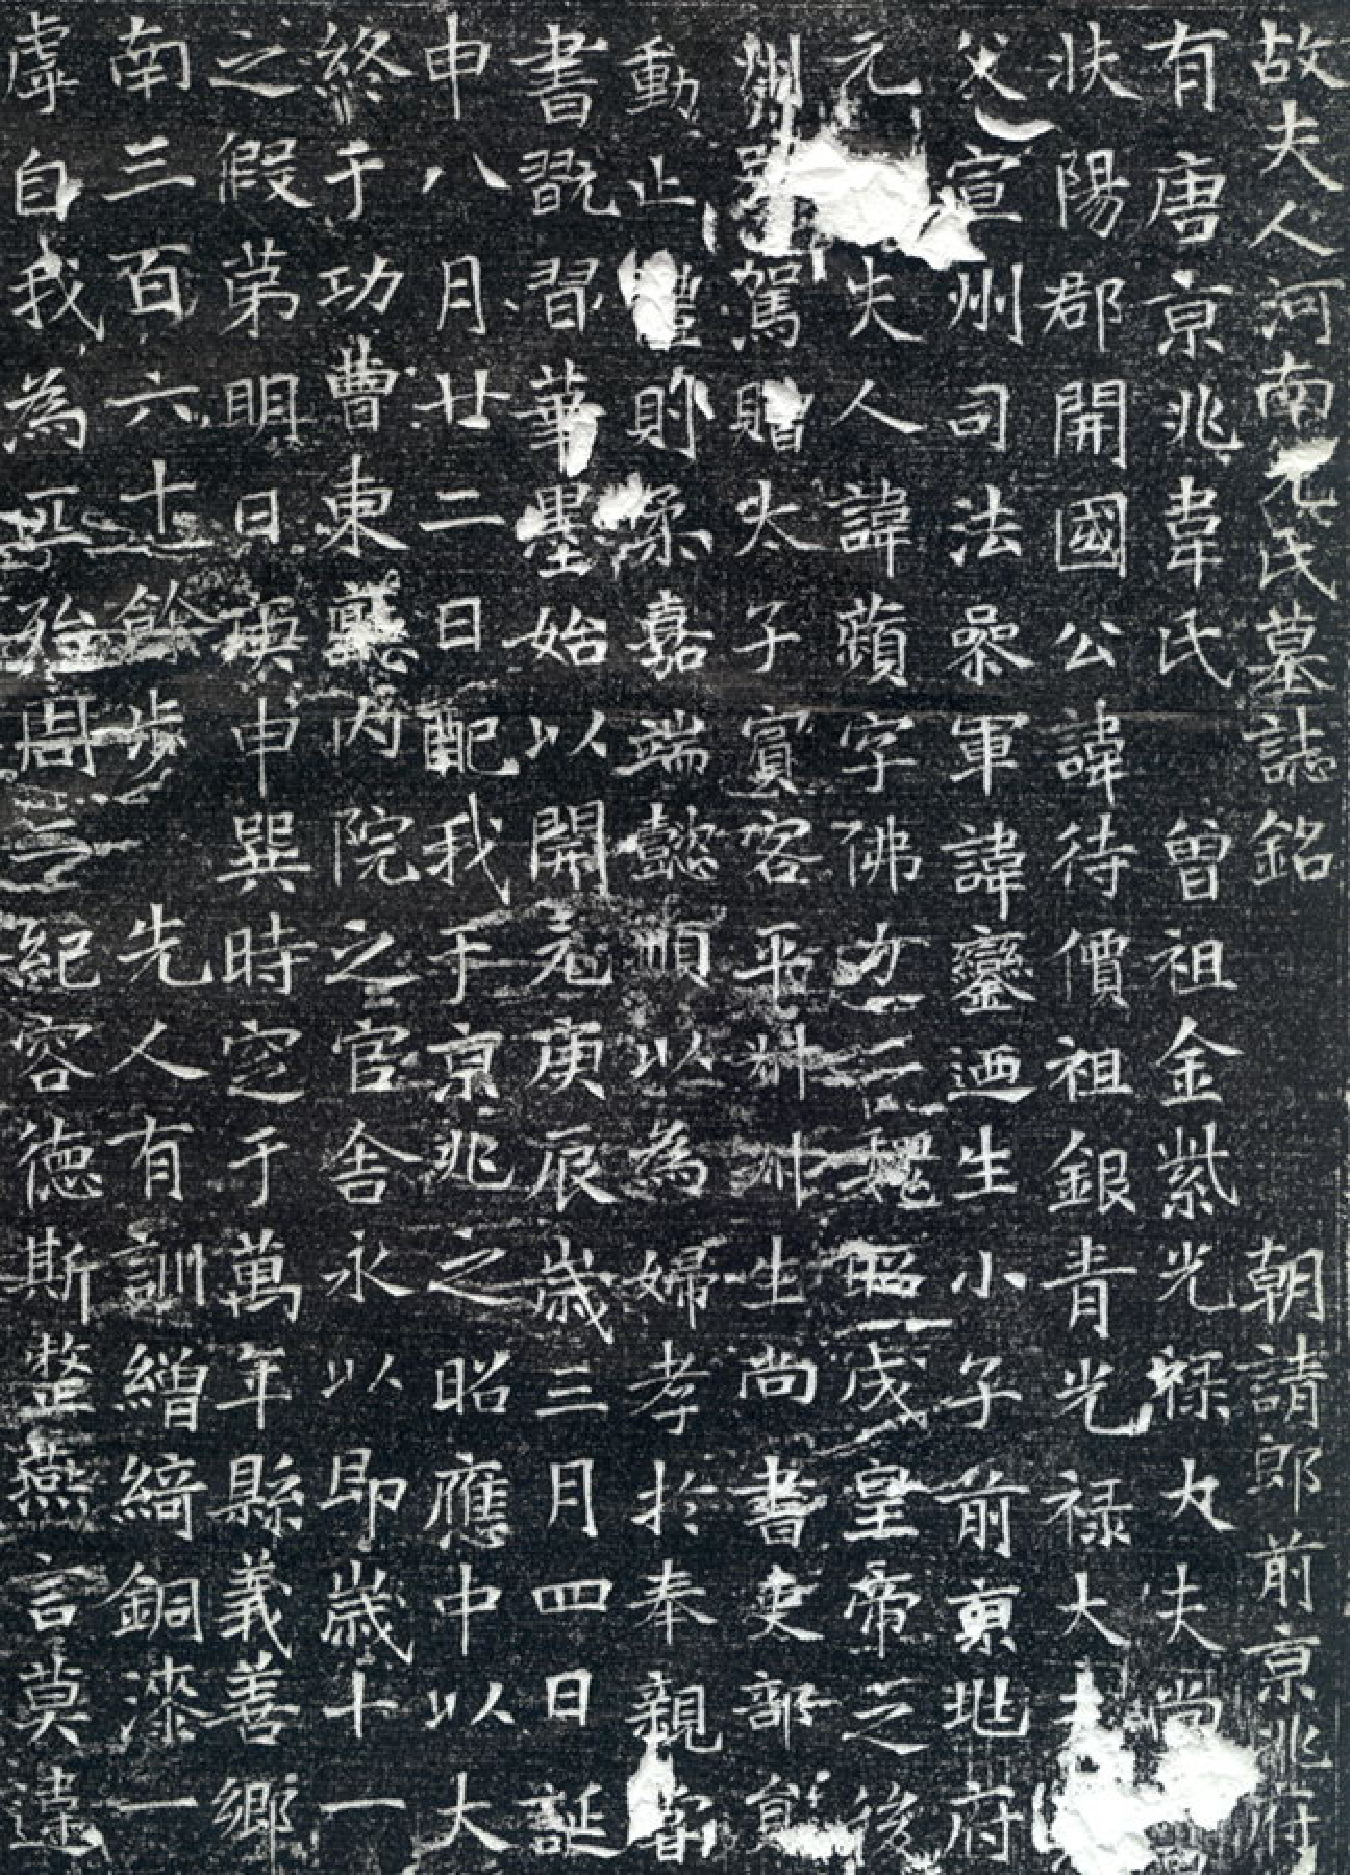 故夫人河南元氏墓誌銘　朝請郎前京兆府
有唐京兆韋氏曾祖金紫光祿大夫尚
扶陽郡開國公諱待價祖銀青光祿大夫
父宣州司法叅軍諱鑾廼生小子前京兆府
元夫人諱蘋字佛力二魏昭成皇帝之後
州別駕贈太子賓客平叔叔生尚書吏部員
動止禮則柔嘉端懿順以為婦孝於奉親嘗
書翫習華墨始以開元庚辰歲三月四日誕
申八月廿二日配我于京兆之昭應中以大
終于功曹東廳內院之官舍永以即歲十一
之假第明日庚申巽時窆于萬年縣義善鄉
南三百六十餘步　先人有訓繒綺銅漆一
虖自我為匹殆周二紀容德斯整燕言莫違